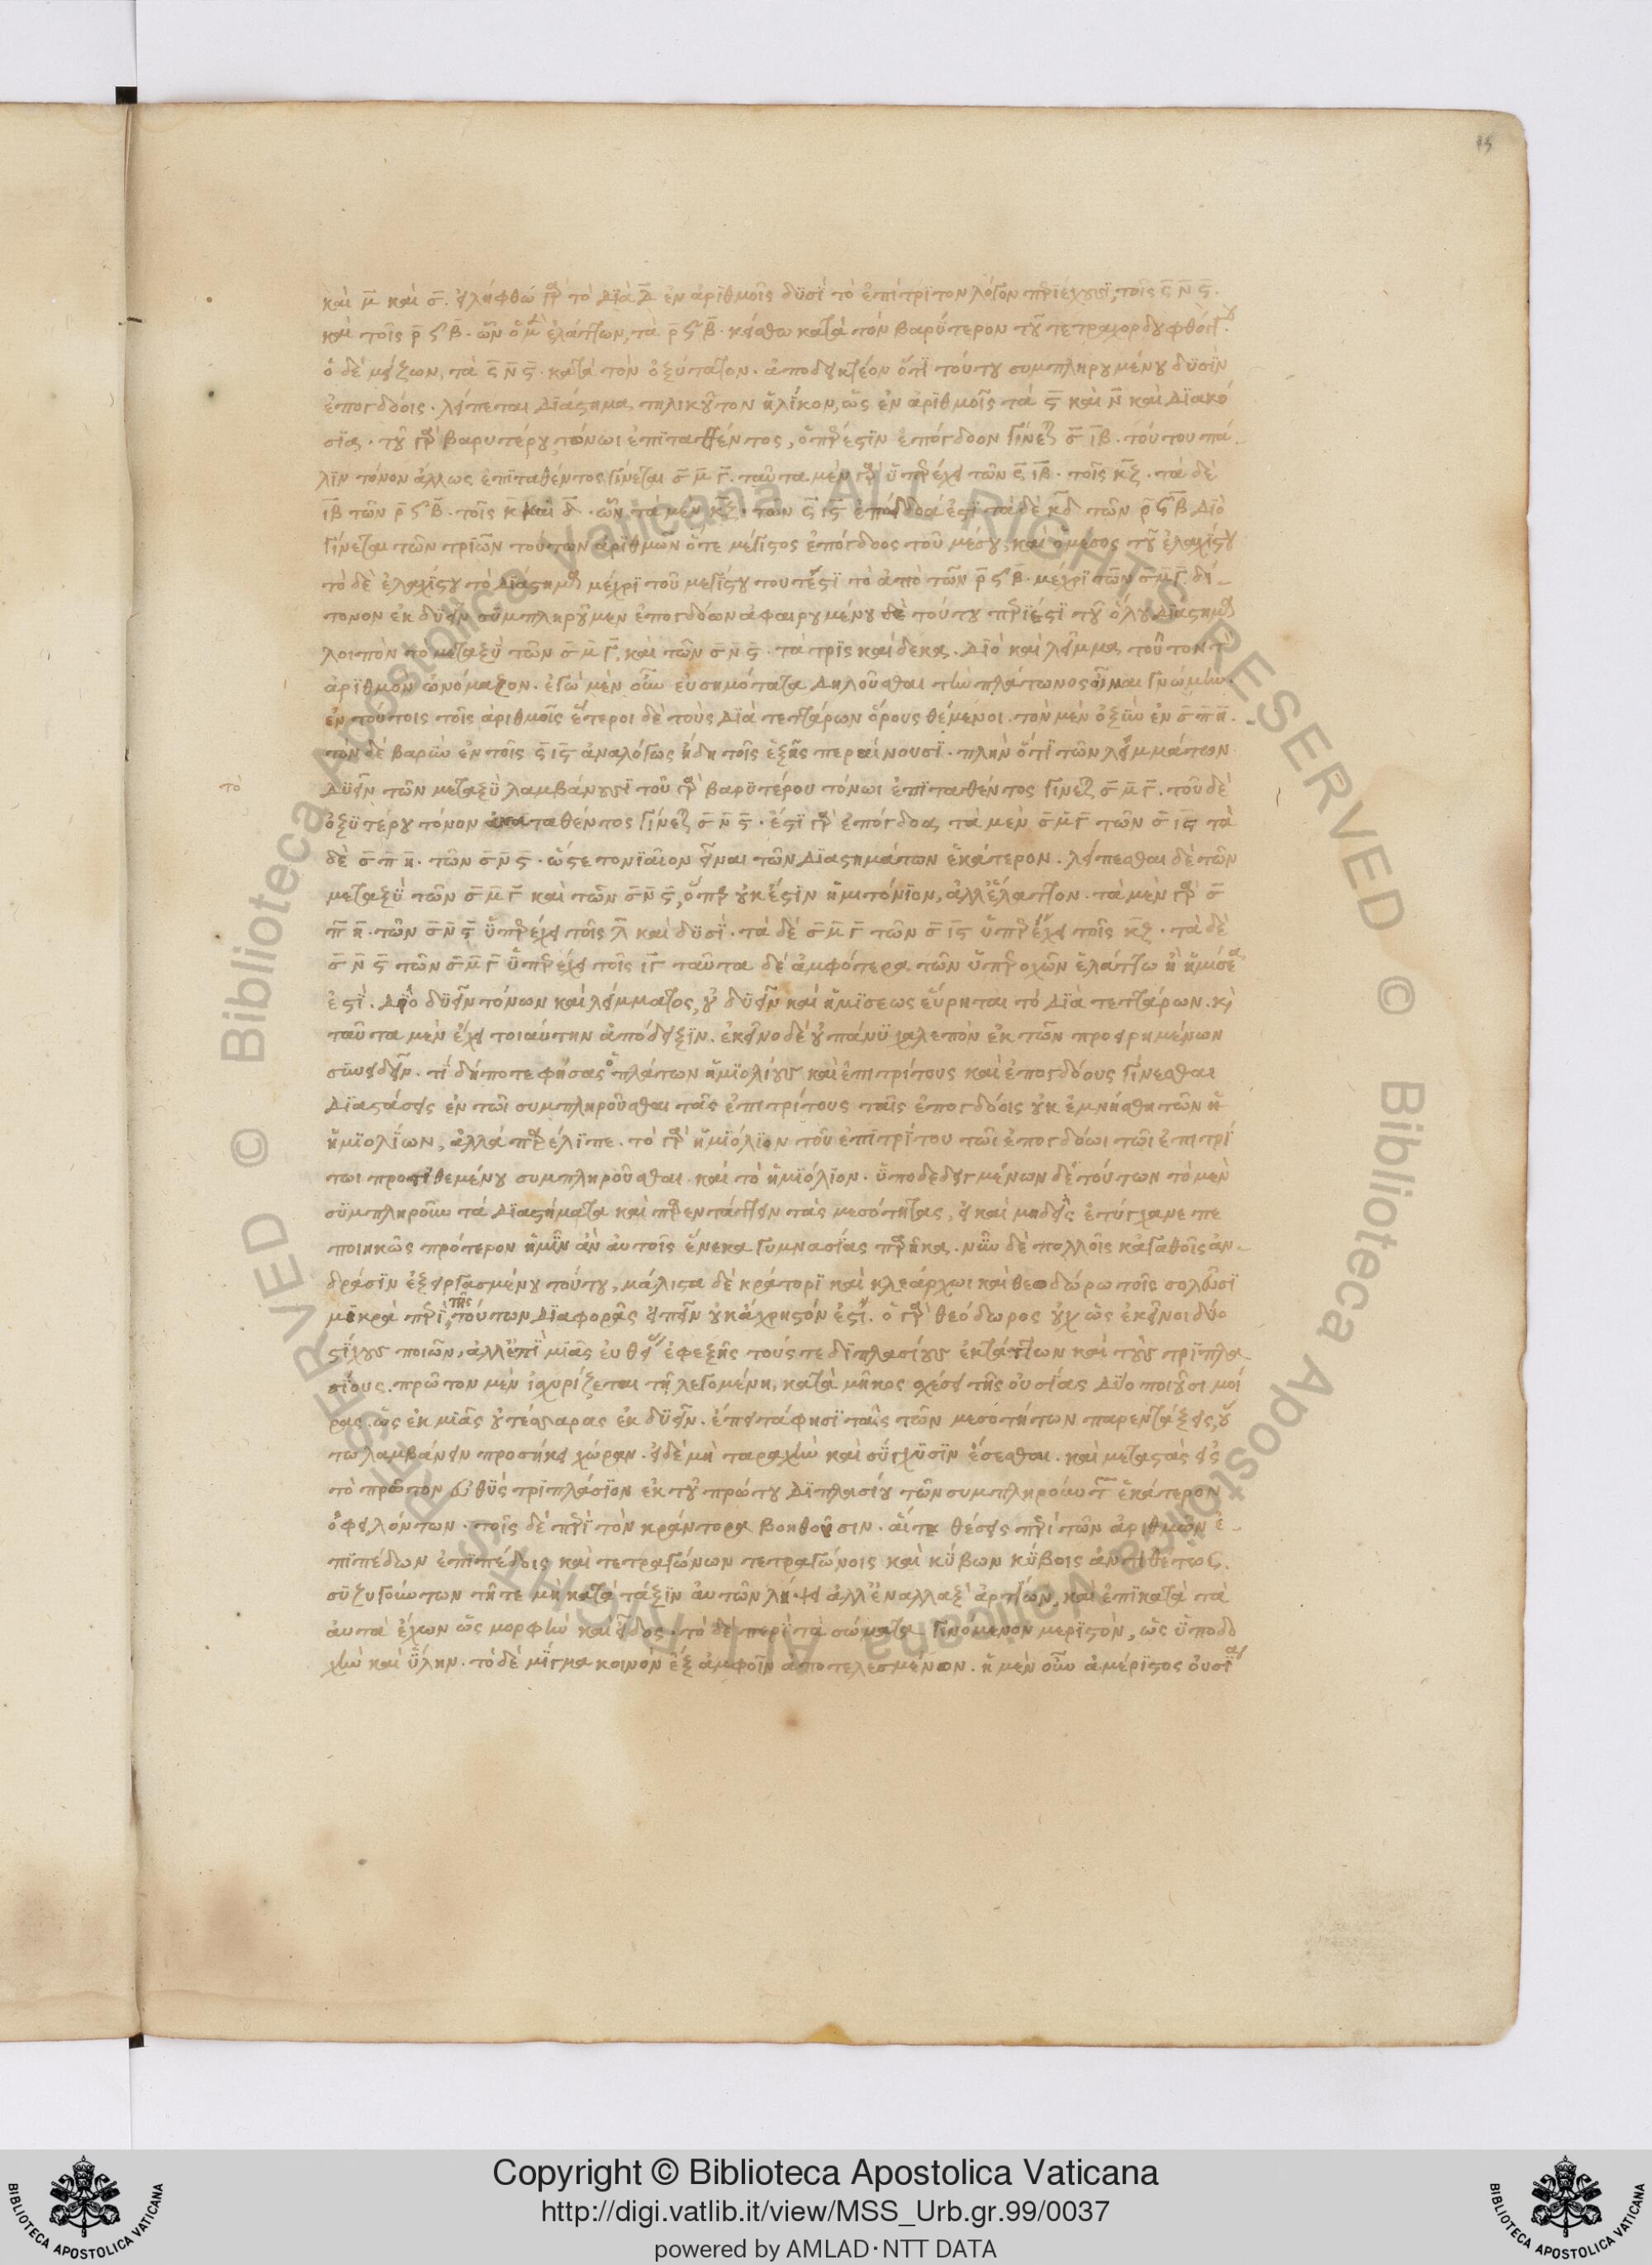 15
καὶ μ̅ καὶ σ̅. εἰλήφθω γὰρ τὸ διὰ δ̅ ἐν ἀριθμοῖς δυσὶ τὸ ἐπίτριτον λόγον περιέχουσι, τοῖς σ̅ ν̅ ς̅.
καὶ τοῖς ρ̅ ϟ̅ β̅. ὧν ὁ μὲν ἐλάττων, τὰ ρ̅ ϟ̅ β̅. κείσθω κατὰ τὸν βαρύτερον τοῦ τετραχόρδου φθόγγου
ὁ δὲ μείζων, τὰ σ̅ ν̅ ς̅. κατὰ τὸν ὀξύτατον. ἀποδεικτέον ὅτι τούτου συμπληρουμένου δυσὶν
ἐπογδόοις. λείπεται διάστημα τηλικοῦτον ἡλίκον, ὡς ἐν ἀριθμοῖς τὰ ς̅ καὶ ν̅ καὶ διακό
σια. τοῦ γὰρ βαρυτέρου τόνωι ἐπιταθέντος, ὅπερ ἐστὶν ἐπόγδοον γίνεται σ̅ ι̅β̅. τούτου πά
λιν τόνον ἄλλως ἐπιταθέντος γίνεται σ̅ μ̅ γ̅. ταῦτα μὲν γὰρ ὑπερέχει τῶν ς̅ ι̅β̅. τοῖς κ̅ζ̅. τὰ δὲ
ι̅β̅ τῶν ρ̅ ϟ̅ β̅. τοῖς κ̅ καὶ δ̅. ὧν τὰ μὲν κ̅ζ̅. τῶν ς̅ ι̅ς̅ ἐπόγδοά ἐστι τὰ δὲ κ̅δ̅ τῶν ρ̅ ϟ̅ β̅ διὸ
γίνεται τῶν τριῶν τούτων ἀριθμῶν ὅτε μέγιστος ἐπόγδοος τοῦ μέσου, καὶ ὁ μέσος τοῦ ἐλαχίστου
τὸ δὲ ἐλαχίστου τὸ διάστημα μέχρι τοῦ μεγίστου τουτέστι τὸ ἀπὸ τῶν ρ̅ ϟ̅ β̅. μέχρι τῶν σ̅ μ̅ γ̅. δί
τονον ἐκ δυεῖν συμπληροῦμεν ἐπογδόων ἀφαιρουμένου δὲ τούτου περίεστι τοῦ ὅλου διαστήμα
λοιπὸν τὸ μεταξὺ τῶν σ̅ μ̅ γ̅, καὶ τῶν σ̅ ν̅ ς̅. τὰ τρὶς καίδεκα. διὸ καὶ λεῖμμα τοῦτον τ
ἀριθμὸν ὠνόμαζον. ἐγὼ μὲν οὖν εὐσημότατα δηλοῦσθαι τὴν πλάτωνος οἶμαι γνώμην.
ἐν τούτοις τοῖς ἀριθμοῖς ἕτεροι δὲ τοὺς διὰ τεττάρων ὅρους θέμενοι. τὸν μὲν ὀξὺν ἐν σ̅ π̅ η̅.
τὸν δὲ βαρὺν ἐν τοῖς ς̅ ι̅ς̅ ἀναλόγως ἤδη τοῖς ἑξῆς περαίνουσι. πλὴν ὅτι τῶν λειμμάτων
τὸ
δυεῖν τῶν μεταξὺ λαμβάνουσι τοῦ γὰρ βαρυτέρου τόνωι ἐπιταθέντος γίνεται σ̅ μ̅ γ̅. τοῦ δὲ
ὀξυτέρου τόνον ἀναταθέντος γίνεται σ̅ ν̅ ς̅. ἔστι γὰρ ἐπόγδοα τὰ μὲν σ̅ μ̅ γ̅ τῶν σ̅ ι̅ς̅ τὰ
δὲ σ̅ π̅ η̅. τῶν σ̅ ν̅ ς̅. ὥστε τονιαῖον εἶναι τῶν διαστημάτων ἑκάτερον. λείπεσθαι δὲ τῶν
μεταξὺ τῶν σ̅ μ̅ γ̅ καὶ τῶν σ̅ ν̅ ς̅, ὅπερ οὐκ ἔστιν ἡμιτόνιον, ἀλλ' ἔλαττον. τὰ μὲν γὰρ σ̅
π̅ η̅. τῶν σ̅ ν̅ ς̅ ὑπερέχει τοῖς λ̅ καὶ δυσί. τὰ δὲ σ̅ μ̅ γ̅ τῶν σ̅ ι̅ς̅ ὑπερέχει τοῖς κ̅ζ̅. τὰ δὲ
σ̅ ν̅ ς̅ τῶν σ̅ μ̅ γ̅ ὑπερέχει τοῖς ι̅γ̅ ταῦτα δὲ ἀμφότερα τῶν ὑπεροχῶν ἐλάττω ἢ ἡμίσεα
ἐστί. διὸ δυεῖν τόνων καὶ λείμματος, οὐ δυεῖν καὶ ἡμίσεως εὕρηται τὸ διὰ τεττάρων. κὶ
ταῦτα μὲν ἔχει τοιαύτην ἀπόδειξιν. ἐκεῖνο δὲ οὐ πάνυ χαλεπὸν ἐκ τῶν προειρημένων
συνειδεῖν. τί δήποτε φήσας ὁ πλάτων ἡμιολίους καὶ ἐπιτρίτους καὶ ἐπογδόους γίνεσθαι
διαστάσεις ἐν τῶι συμπληροῦσθαι τὰς ἐπιτρίτους ταῖς ἐπογδόοις οὐκ ἐμνήσθη τῶν ἡ
ἡμιολίων, ἀλλὰ παρέλιπε. τὸ γὰρ ἡμιόλιον τοῦ ἐπιτρίτου τῶι ἐπογδόωι τῶι ἐπιτρί
τωι προστιθεμένου συμπληροῦσθαι. καὶ τὸ ἡμιόλιον. ὑποδεδειγμένων δὲ τούτων τὸ μὲν
συμπληροῦν τὰ διαστήματα καὶ παρεντάττειν τὰς μεσότητας, εἰ καὶ μηδεὶς ἐτύγχανε πε
ποιηκὼς πρότερον ἡμῖν ἂν αὐτοῖς ἕνεκα γυμνασίας παρῆκα. νῦν δὲ πολλοῖς κἀγαθοῖς ἀν
δράσιν ἐξειργασμένου τούτου, μάλιστα δὲ κράτορι καὶ κλεάρχωι καὶ θεοδώρω τοῖς σολεῦσι
μικρὰ περὶ τῆς τούτων διαφορᾶς εἰπεῖν οὐκ ἄχρηστόν ἐστι. ὁ γὰρ θεόδωρος οὐχ ὡς ἐκεῖνοι δύο
στίχους ποιῶν, ἀλλ' ἐπὶ μιᾶς εὐθείας ἐφεξῆς τούς τε διπλασίους ἐκτάττων καὶ τοὺς τριπλα
σίους. πρῶτον μὲν ἰσχυρίζεται τῆ λεγομένη, κατὰ μῆκος σχέσει τῆς οὐσίας δύο ποιοῦσι μοί
ρας. ὡς ἐκ μιᾶς οὐ τέσσαρας ἐκ δυεῖν. ἔπειτά φησι τὰς τῶν μεσοτήτων παρεντάξεις, οὕ
τω λαμβάνειν προσήκει χώραν. εἰ δὲ μὴ ταραχὴν καὶ σύγχυσιν ἔσεσθαι. καὶ μεταστὰς εἰς
τὸ πρῶτον εὐθὺς τριπλάσιον ἐκ τοῦ πρώτου διπλασίου τῶν συμπληρούντ ἑκάτερον
ὀφειλόντων. τοῖς δὲ περὶ τὸν κράντορα βοηθοῦσιν. αἵτε θέσεις περὶ τῶν ἀριθμῶν ἐ
πιπέδων ἐπιπέδοις καὶ τετραγώνων τετραγώνοις καὶ κύβων κύβοις ἀντιθέτως.
συζυγούντων τῆτε μὴ κατὰ τάξιν αὐτῶν λήψει ἀλλ' ἐναλλὰξ ἀρτίων, καὶ ἐπὶ κατὰ τὰ
αὐτὰ ἔχων ὡς μορφὴν καὶ εἶδος. τὸ δὲ περὶ τὰ σώματα γινόμενον μεριστὸν, ὡς ὑποδο
χὴν καὶ ὕλην. τὸ δὲ μίγμα κοινὸν ἐξ ἀμφοῖν ἀποτελεσμένον. ἡ μὲν οὖν ἀμέριστος οὐσία
Copyright © Biblioteca Apostolica Vaticana
http://digi.vatlib.it/view/MSS_Urb.gr.99/0037
powered by AMLAD·NTT DATA
BIBLIOTECA APOSTOLICA VATICANA
BIBLIOTECA APOSTOLICA VATICANA